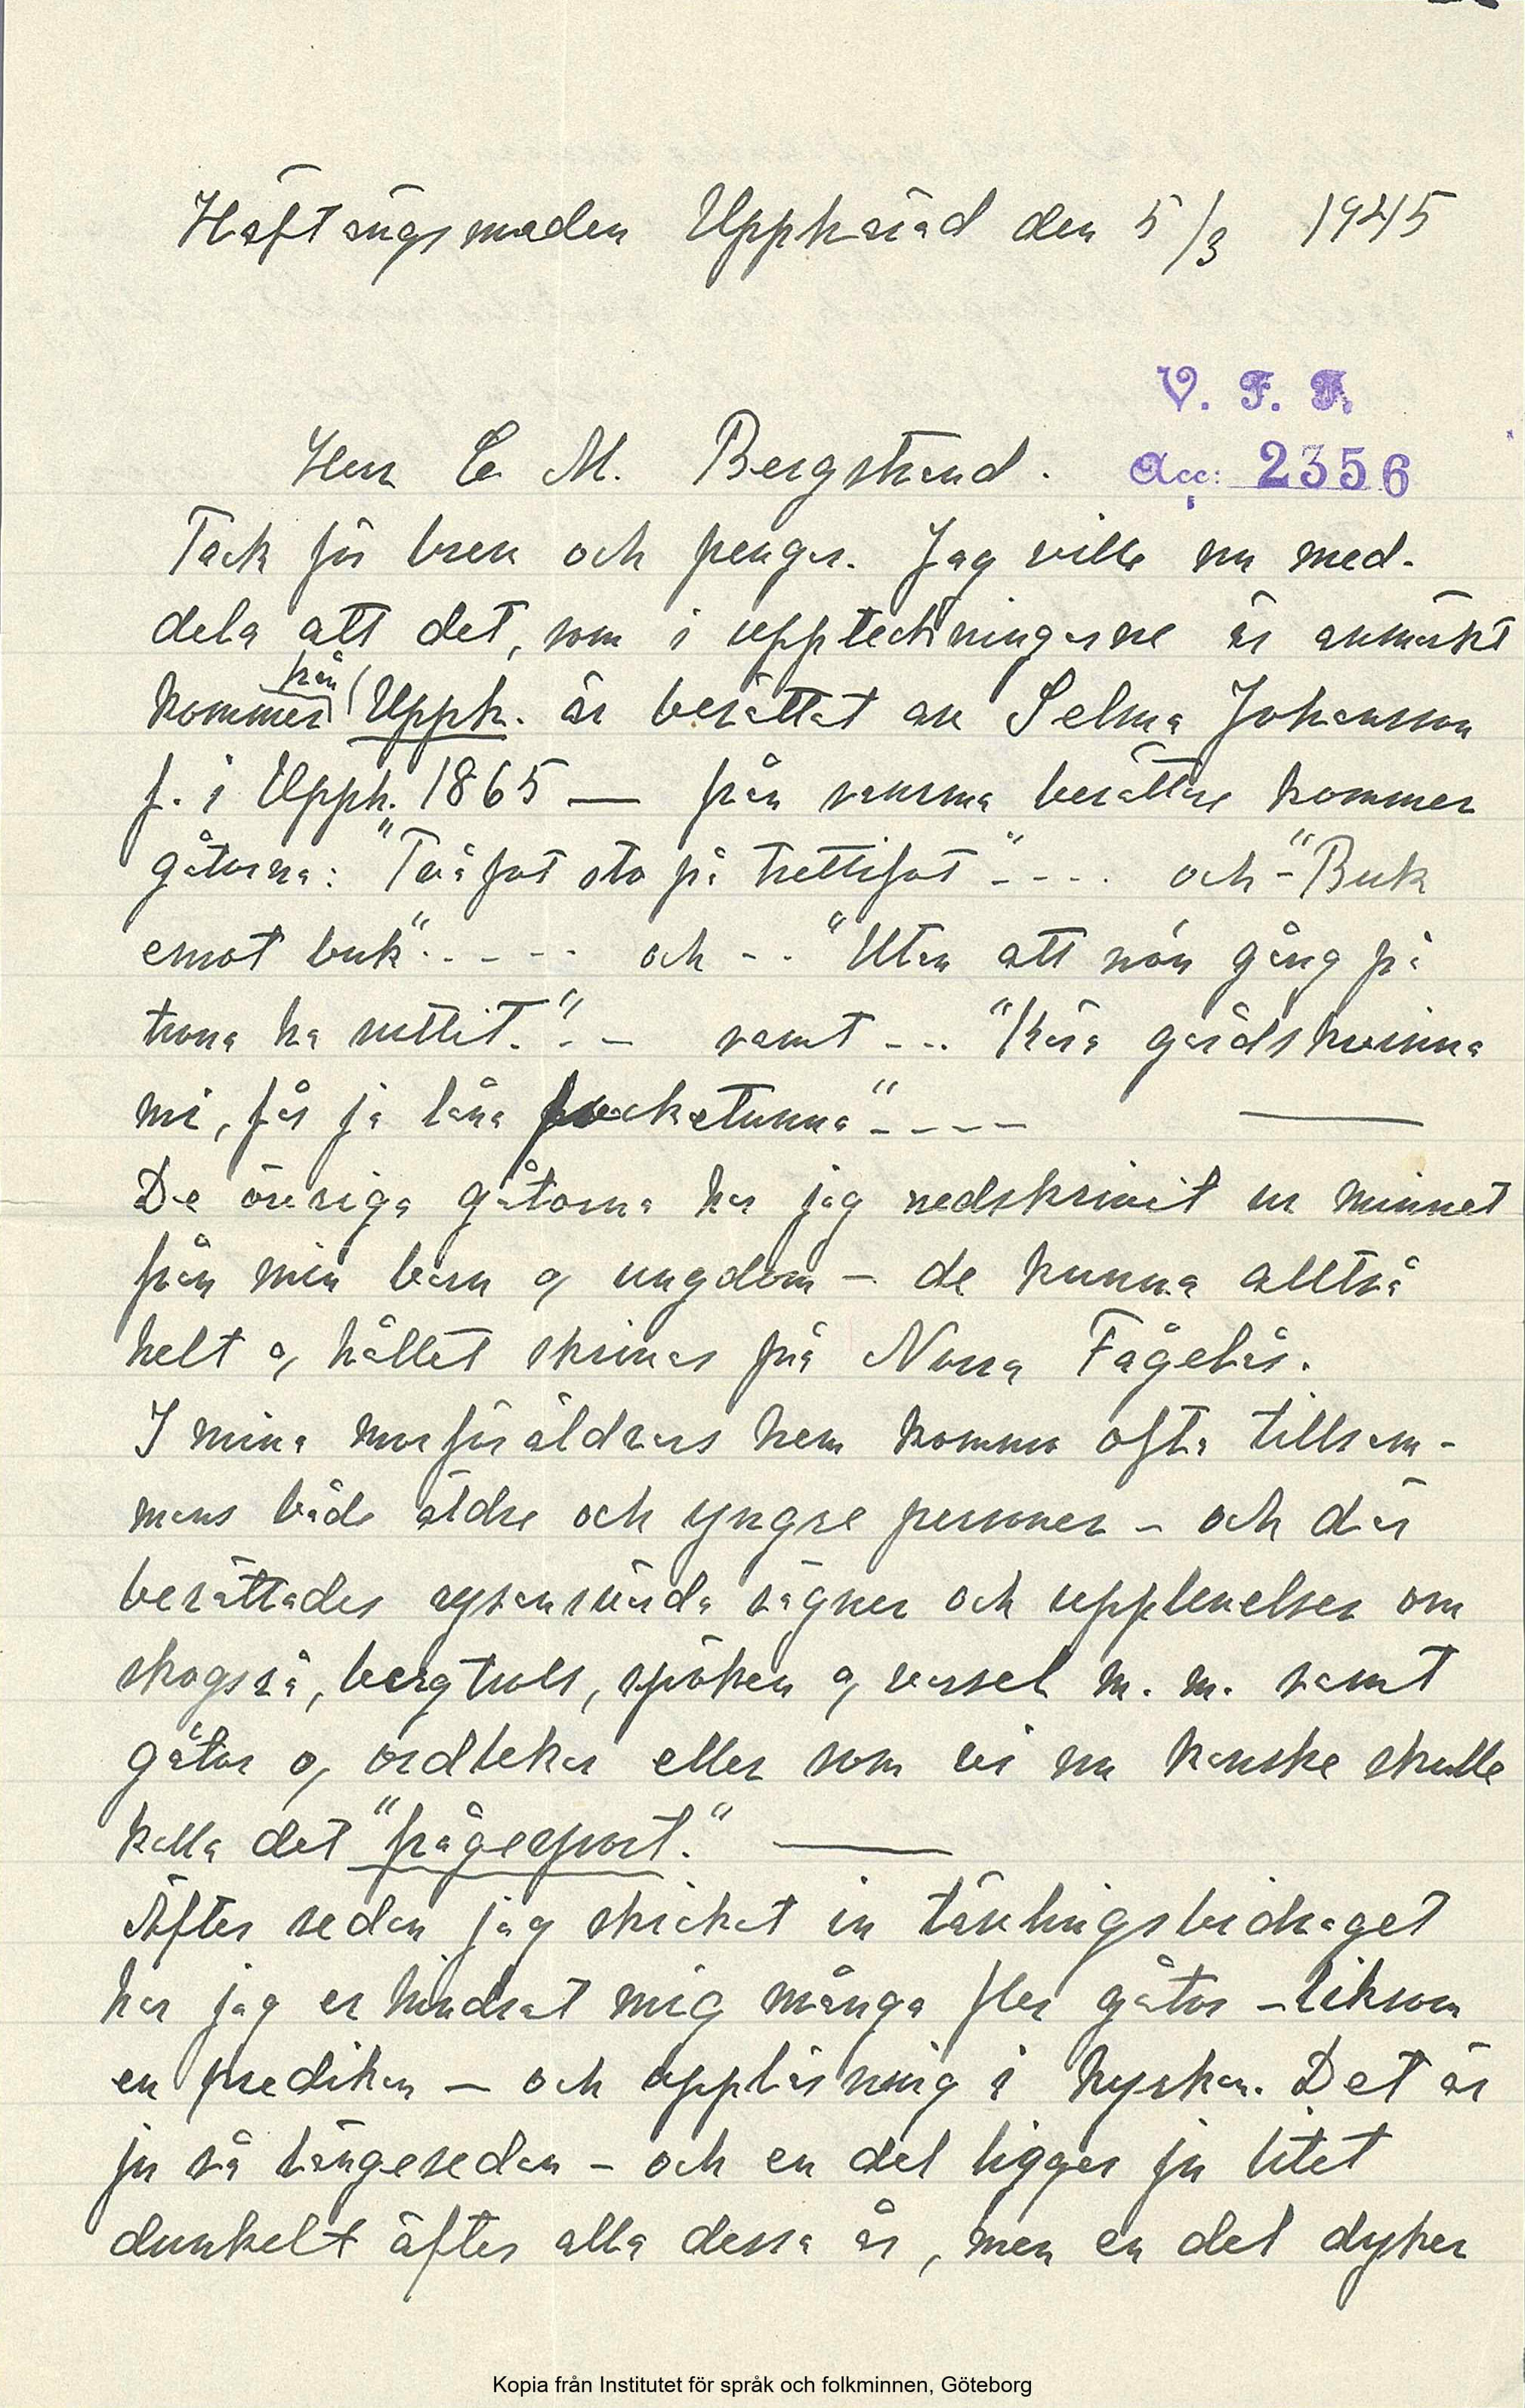 Häftängsmaden Upphärad den 5/3 1945
V. F. F.
Herr C. M. Bergstrand.
Acc: 2356
Tack för brev och pengar. Jag ville nu med-
dela att det, som i uppteckningarne är anmärkt
kommer från Upph. är berättat av Selma Johansson
f. i Upph. 1865 — från samma berättare kommer
gåtorna: "Tvåfot sto på trettifot" - - - . och - "Buk
emot buk" . - - - - och - . . "Utan att nón gång på
trona ha suttit." . - - samt - - . . "Kära gärdskvinna
mi, får ja låna tunna" - - - - —
De övriga gåtorna har jag nedskrivit ur minnet
från min barn o, ungdom - de kunna alltså
helt o, hållet skrivas på Norra Fågelås.
I mina morföräldrars hem kommo ofta tillsam-
mans både äldre och yngre personer - och där
berättades sägner och upplevelser om
skogsrå, bergtroll, spöken o, varsel m. m. samt
gåtor o, ordlekar eller som vi nu kanske skulle
kalla det "frågesport." —
Äfter sedan jag skickat in tävlingsbidraget
har jag erhindrat mig många fler gåtor - liksom
en predikan — och uppläsning i kyrkan. Det är
ju så längesedan - och en del ligger ju litet
dunkelt äfter alla dessa år, men en del dyker
Kopia från Institutet för språk och folkminnen, Göteborg